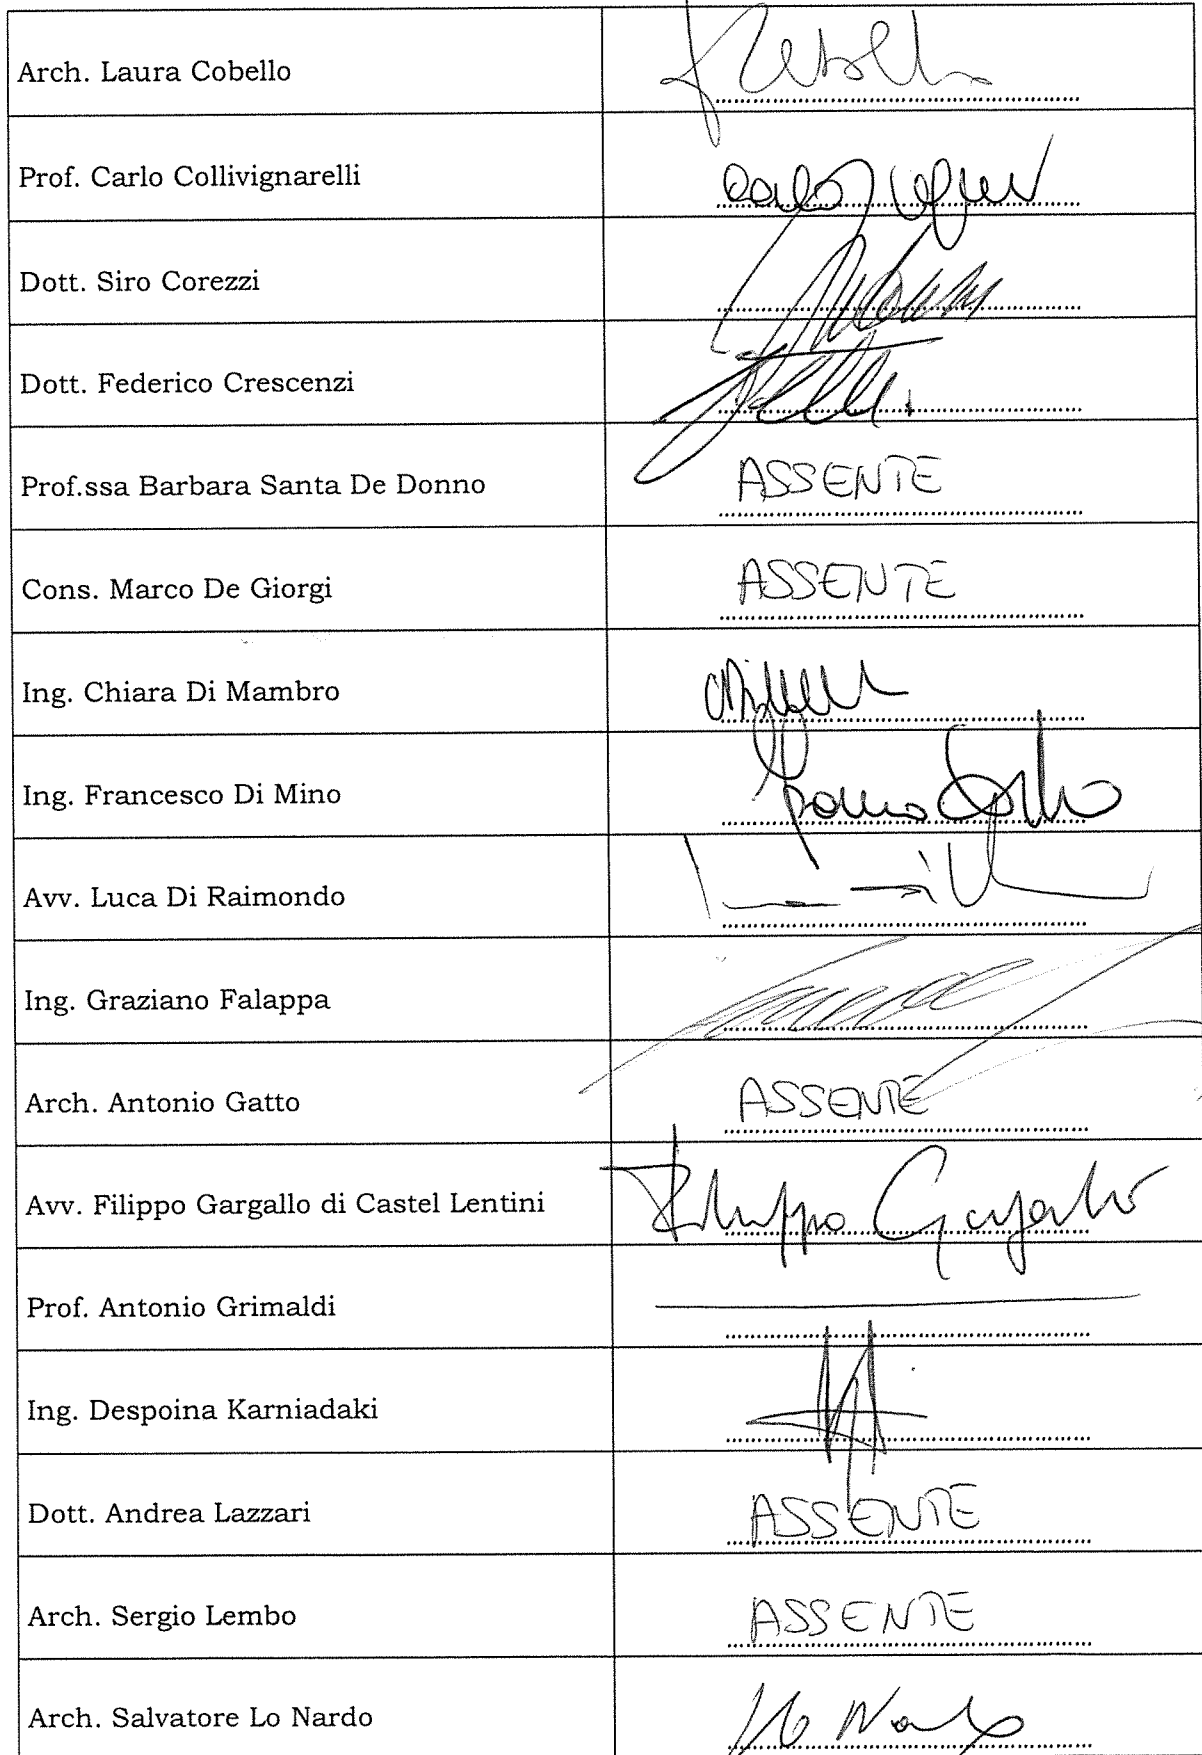 Arch. Laura Cobello
Prof. Carlo Collivignarelli
Dott. Siro Corezzi
Dott. Federico Crescenzi
Prof.ssa Barbara Santa De Donno ASSENTE
Cons. Marco De Giorgi ASSENTE
Ing. Chiara Di Mambro
Ing. Francesco Di Mino
Avv. Luca Di Raimondo
Ing. Graziano Falappa
Arch. Antonio Gatto ASSENTE
Avv. Filippo Gargallo di Castel Lentini Filippo Gargallo
Prof. Antonio Grimaldi
Ing. Despoina Karniadaki
Dott. Andrea Lazzari ASSENTE
Arch. Sergio Lembo ASSENTE
Arch. Salvatore Lo Nardo Lo Nardo